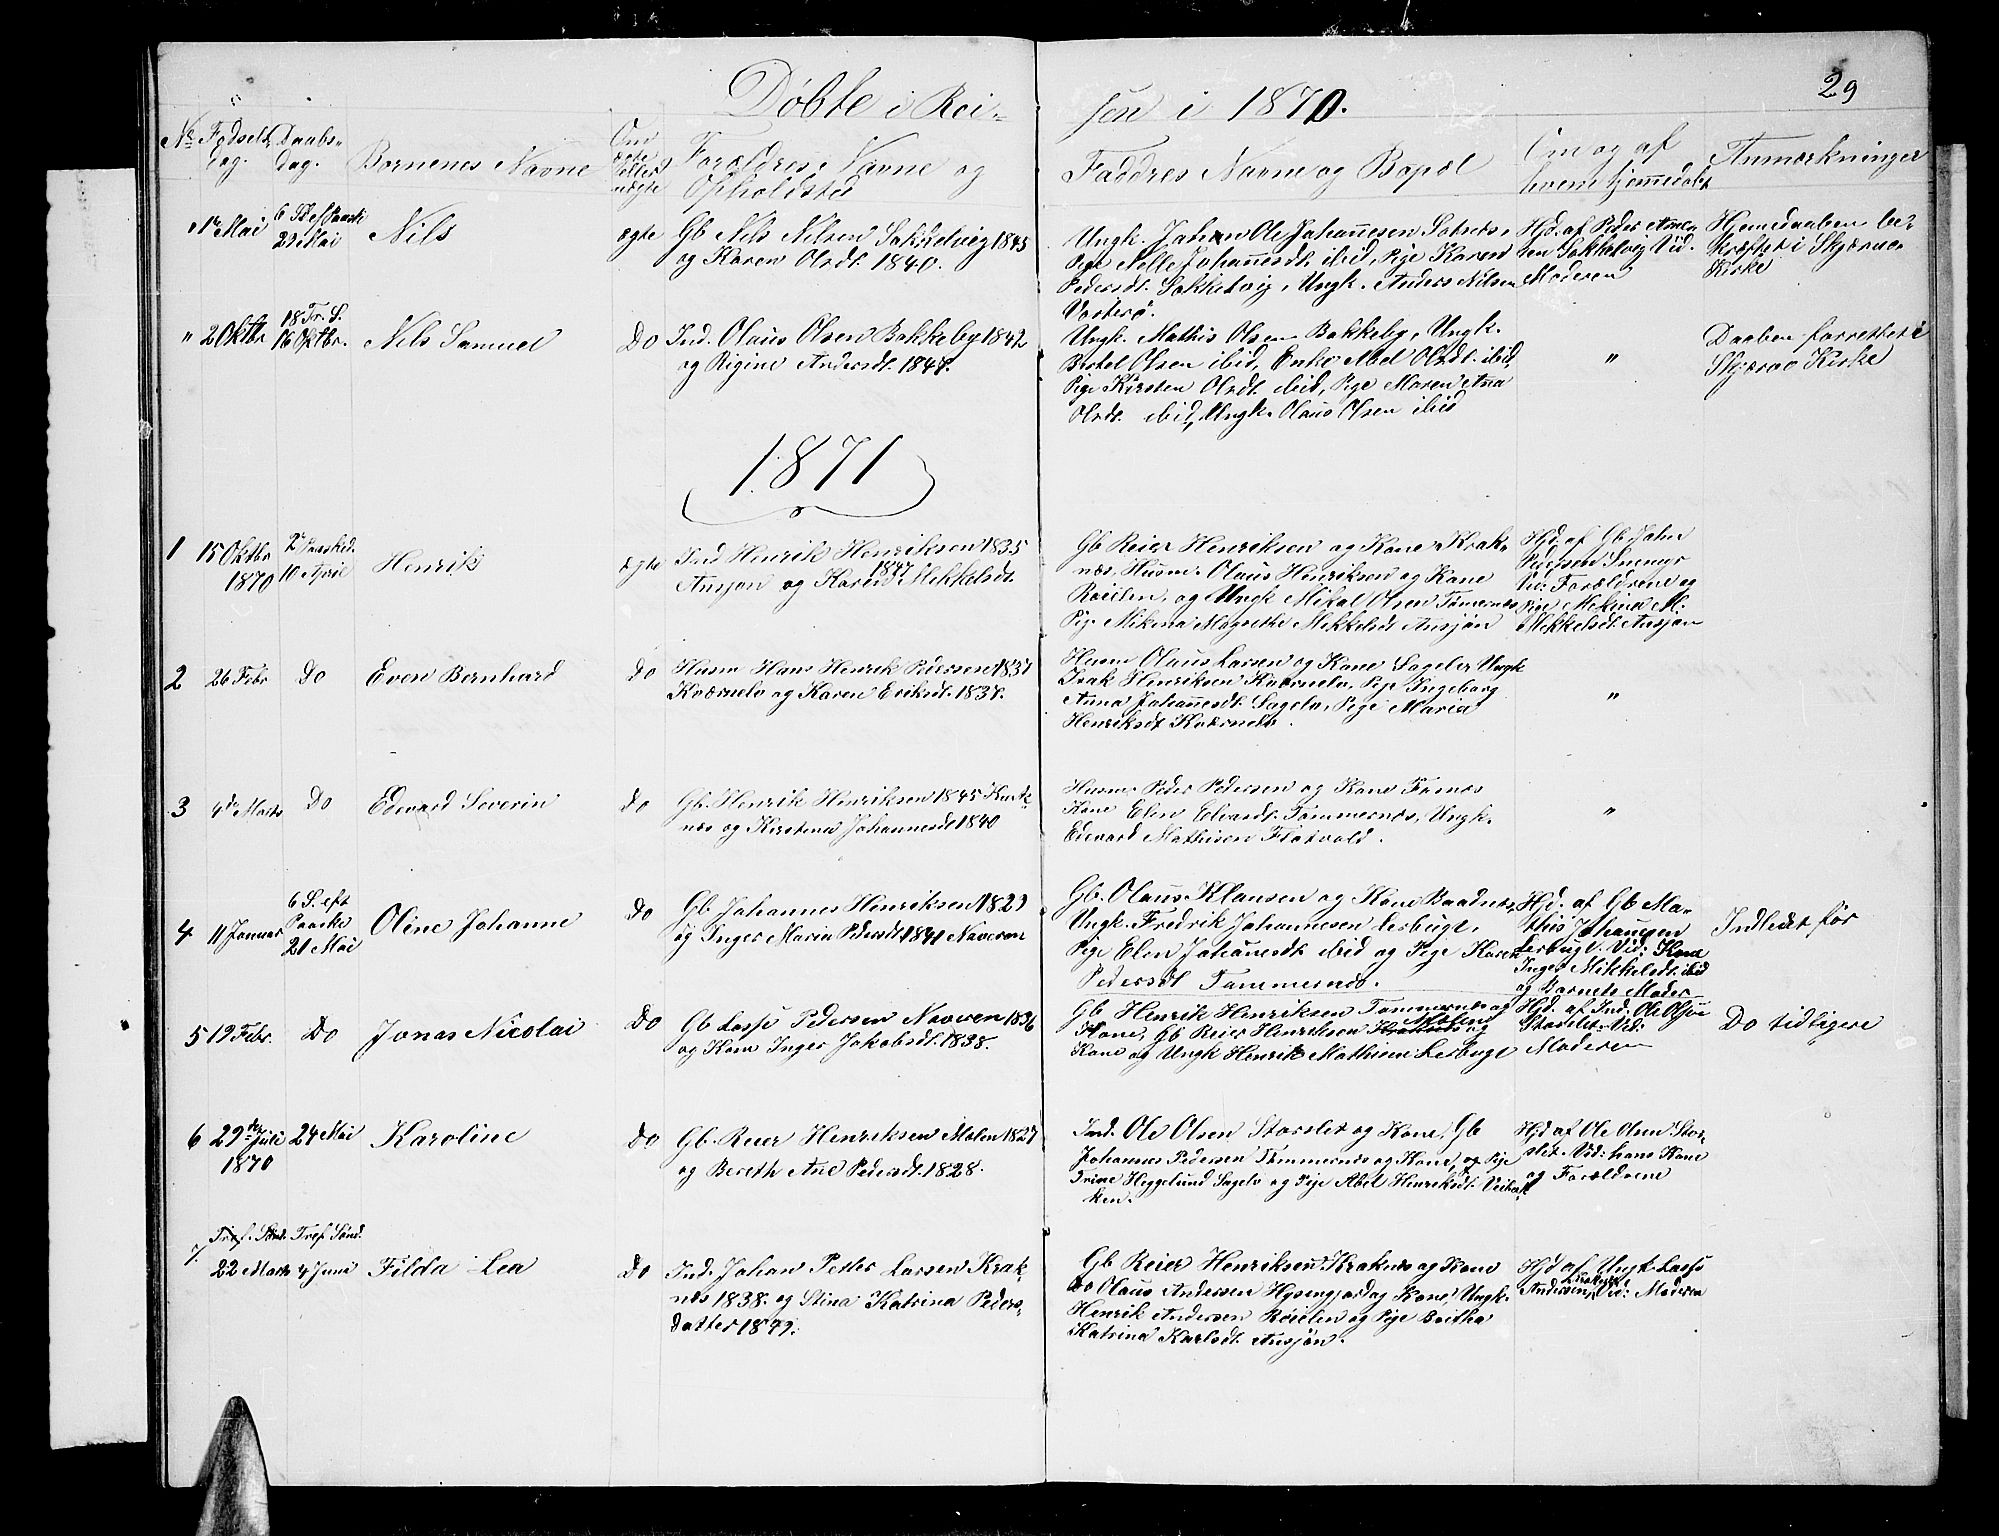 29
Døbte i Rei-
sen i 1870.
No Fødsels Daabs-
dag. Dag. Børnenes Navne
Om ægte eller uægte
Forældres Navne og
Opholdsted
Faddres Navne og Bopæl
Om og af
hvem hjemmedøbt
Anmærkninger
" 1ste Mai 6 S. ef Paaske
29 Mai Nils ægte
Gb Nils Nilsen Sokkelvig 1845
og Karen Olsdt. 1840.
Ungk. Johan Ole Johannesen Sotnæs,
Pige Nelle Johannesdt. ibid, Pige Karen
Pedersdt. Sokkelvig, Ungk. Anders Nilsen
Vorterø.
Hjd. af Peder Andre-
sen Sokkelvig Vid.
Moderen
Hjemedaaben be-
kræftet i Skjærvø
Kirke
" 2 Oktbr 18 Tr. S.
16 Oktbr. Nils Samuel Do
Ind. Olaus Olsen Bakkeby 1842
og Rigine Andersdt. 1848.
Ungk. Mathis Olsen Bakkeby, Ungk.
Bertel Olsen ibid, Enke Abel Olsdt. ibid,
Pige Kirsten Olsdt. ibid, Pige Maren Ana
Olsdt. ibid, Ungk. Olaus Olsen ibid
"
Daaben forrettet i
Skjærvø Kirke
1871
1 15 Oktbr 2 Paasked.
1870 10 April Henrik ægte
Ind Henrik Henriksen 1835
Ansjøn og Karen 1847 Mikkelsdt.
Gb Reier Henriksen og Kone Krak-
næs, Husm. Olaus Henriksen og Kone
Røielen, og Ungk Mikal Olsen Tømernæs
Pige Mikena Magrethe Mikkelsdt Ansjøn
Hjd. af Gb Johan
Pedersen Snemyr
Vid: Forældrene og
Pige Mekina M:
Mikkelsdt. Ansjøn
2 26 Febr Do Even Bernhard Do
Husm Hans Henrik Pedersen 1837
Kværnelv og Karen Eriksdt. 1837.
Husm Olaus Larsen og Kone Sagelv Ungk
Isak Henriksen Kværnelv, Pige Ingeborg
Anna Johannesdt. Sagelv, Pige Maria
Henriksdt Kværnelv.
"
3 4de Marts Do Edevard Severin Do
Gb. Henrik Henriksen 1845 Krak-
næs og Kirstina Johannesdt 1840
Husm. Peder Pedersen og Kone Tømæs
Kone Elen Edvardt. Tømmernæs, Ungk.
Edevard Mathisen Flatvold.
"
4 11 Januar 6 S. eft
Paaske
21 Mai Oline Johanne Do
Gb Johannes Henriksen 1829
og Inger Maria Pedersdt 1841 Naveren
Gb. Olaus Klausen og Kone Baadnæs,
Ungk. Fredrik Johannesen Lerbugt,
Pige Elen Johannesdt ibid og Pige Karen
Pedersdt Tømmernæs.
Hjd. af Gb Ma-
this Johannesen
Lerbugt. Vid: Kone
Inger Mikkelsdt. ibid
og Barnets Moder
Indledet før
5 19 Febr. Do Jonas Nicolai Do
Gb Lasse Pedersen Naveren 1836
og Kone Inger Jakobsdt. 1838.
Gb Henrik Henriksen Tømmernæs og
Kone, Gb Reier Henriksen Molen og
Kone og Ungk Henrik Mathisen Lerbugt
Hjd. af Ind. Ole Olsen
Storslet. Vid:
Moderen
Do tidligere
6 29de Juli 24 Mai
1870 Karoline Do
Gb. Reier Henriksen Molen 1827
og Bereth Ane Pedersdt. 1828.
Ind. Ole Olsen Storslet og Kone, Gb
Johannes Pedersen Tømmernæs og Kone, og Pige
Trine Heggelund Sagelv og Pige Abel Henriksdt. Veibak-
ken.
Hjd af Ole Olsen Stor-
slet. Vid: hans Kone
og Forældrene
7. Tref. Sønd.
22 Marts 4 Juni Filda Lea Do
Ind. Johan Petter Larsen Krak-
næs 1838. og Stina Katrina Peders-
datter 1849.
Gb Reier Henriksen Kraknæs og Kone
Do Olaus Andersen Hysingjord og Kone, Ungk.
Henrik Andersen Røielen og Pige Boitha
Katrina Karlsdt. Ansjøn.
Hjd af Ungk Lasse
Andersen, Kraknæs Vid: Moderen